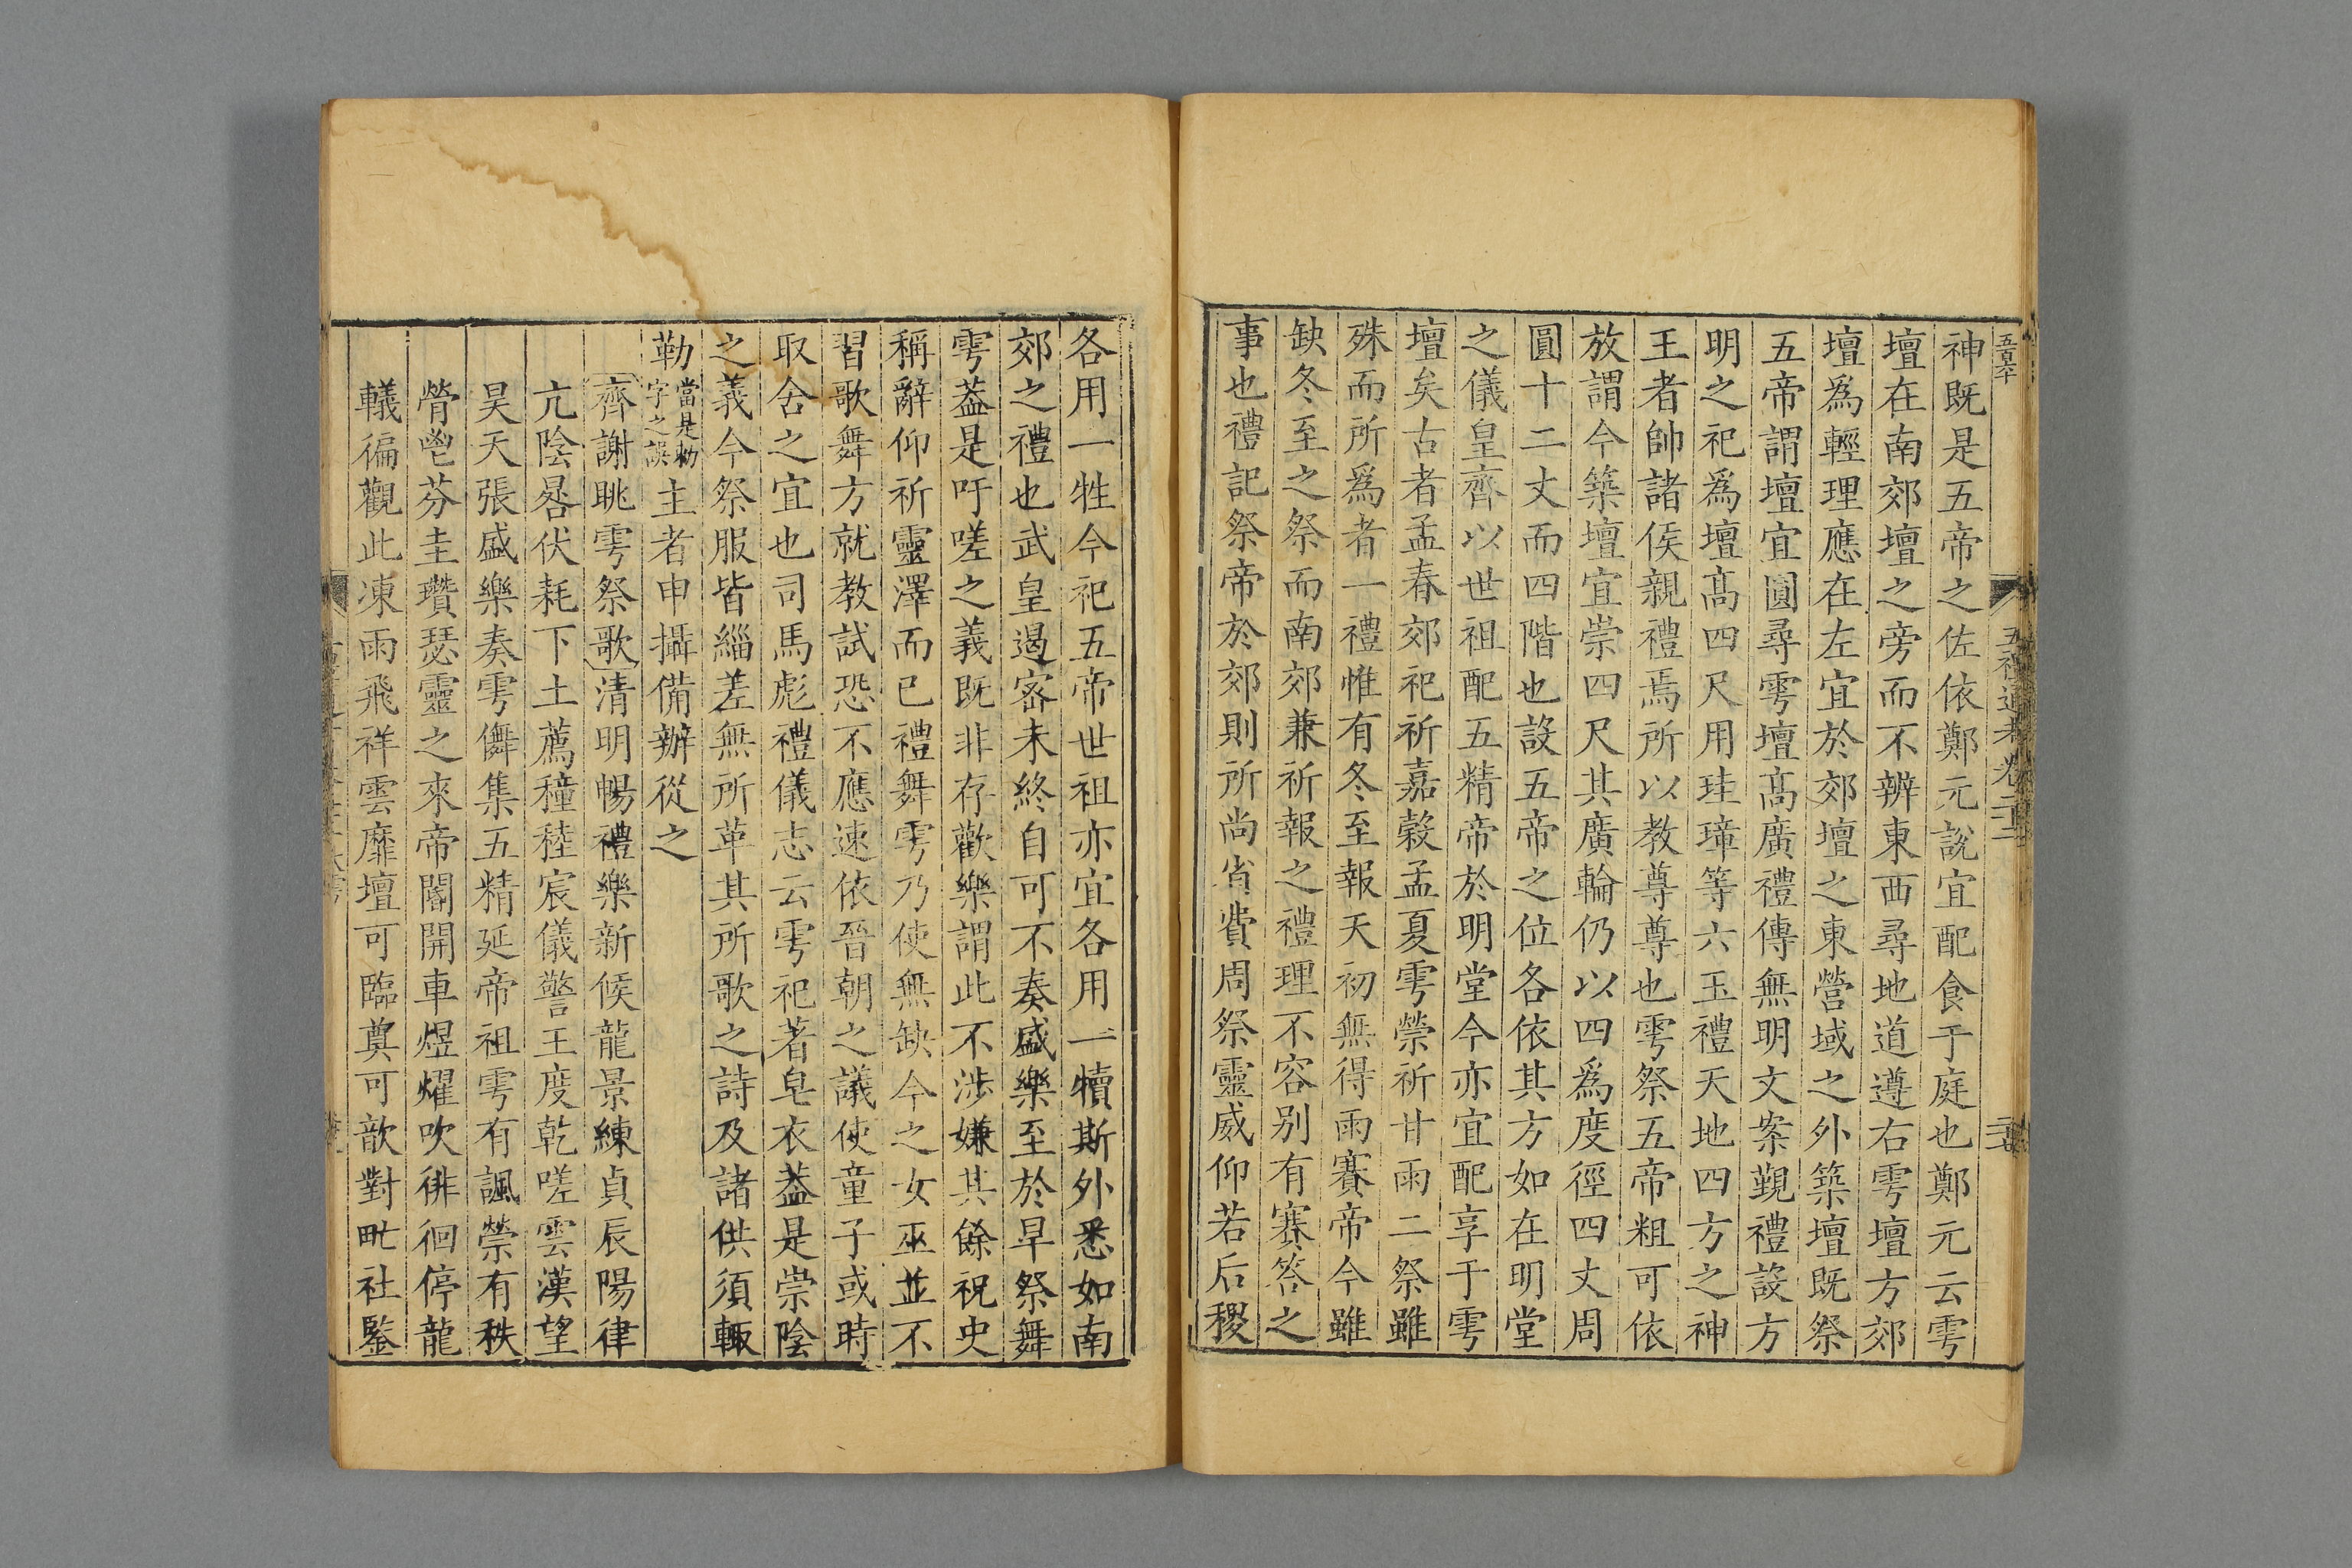 五百六十
五禮通考卷二十二
神既是五帝之佐依鄭元說宜配食于庭也鄭元云雩
壇在南郊壇之旁而不辨東西尋地道遵右雩壇方郊
壇爲輕理應在左宜於郊壇之東營域之外築壇既祭
五帝謂壇宜圓尋雩壇髙廣禮傳無明文案覲禮設方
明之祀爲壇髙四尺用珪璋等六玉禮天地四方之神
王者帥諸侯親禮焉所以教尊尊也雩祭五帝粗可依
放謂今築壇宜崇四尺其廣輪仍以四爲度徑四丈周
圓十二丈而四階也設五帝之位各依其方如在明堂
之儀皇齊以世祖配五精帝於明堂今亦宜配享于雩
壇矣古者孟春郊祀祈嘉穀孟夏雩禜祈甘雨二祭雖
殊而所爲者一禮惟有冬至報天初無得雨賽帝今雖
缺冬至之祭而南郊兼祈報之禮理不容别有賽答之
事也禮記祭帝於郊則所尚省費周祭靈威仰若后稷
各用一牲今祀五帝世祖亦宜各用一犢斯外悉如南
郊之禮也武皇遏密未終自可不奏盛樂至於旱祭舞
雩葢是吁嗟之義既非存歡樂謂此不涉嫌其餘祝史
稱辭仰祈靈澤而已禮舞雩乃使無缺今之女巫並不
習歌舞方就教試恐不應速依晉朝之議使童子或時
取舍之宜也司馬彪禮儀志云雩祀著皂衣葢是崇陰
之義今祭服皆緇差無所革其所歌之詩及諸供須輒
勒當是勅字之誤主者申攝備辦從之
齊謝眺雩祭歌清明暢禮樂新候龍景練貞辰陽律
亢陰晷伏耗下土薦穜稑宸儀警王度乾嗟雲漢望
昊天張盛樂奏雩儛集五精延帝祖雩有諷禜有秩
膋鬯芬圭瓚瑟靈之來帝閽開車煜燿吹徘徊停龍
轙徧觀此凍雨飛祥雲靡壇可臨奠可歆對甿社鑒